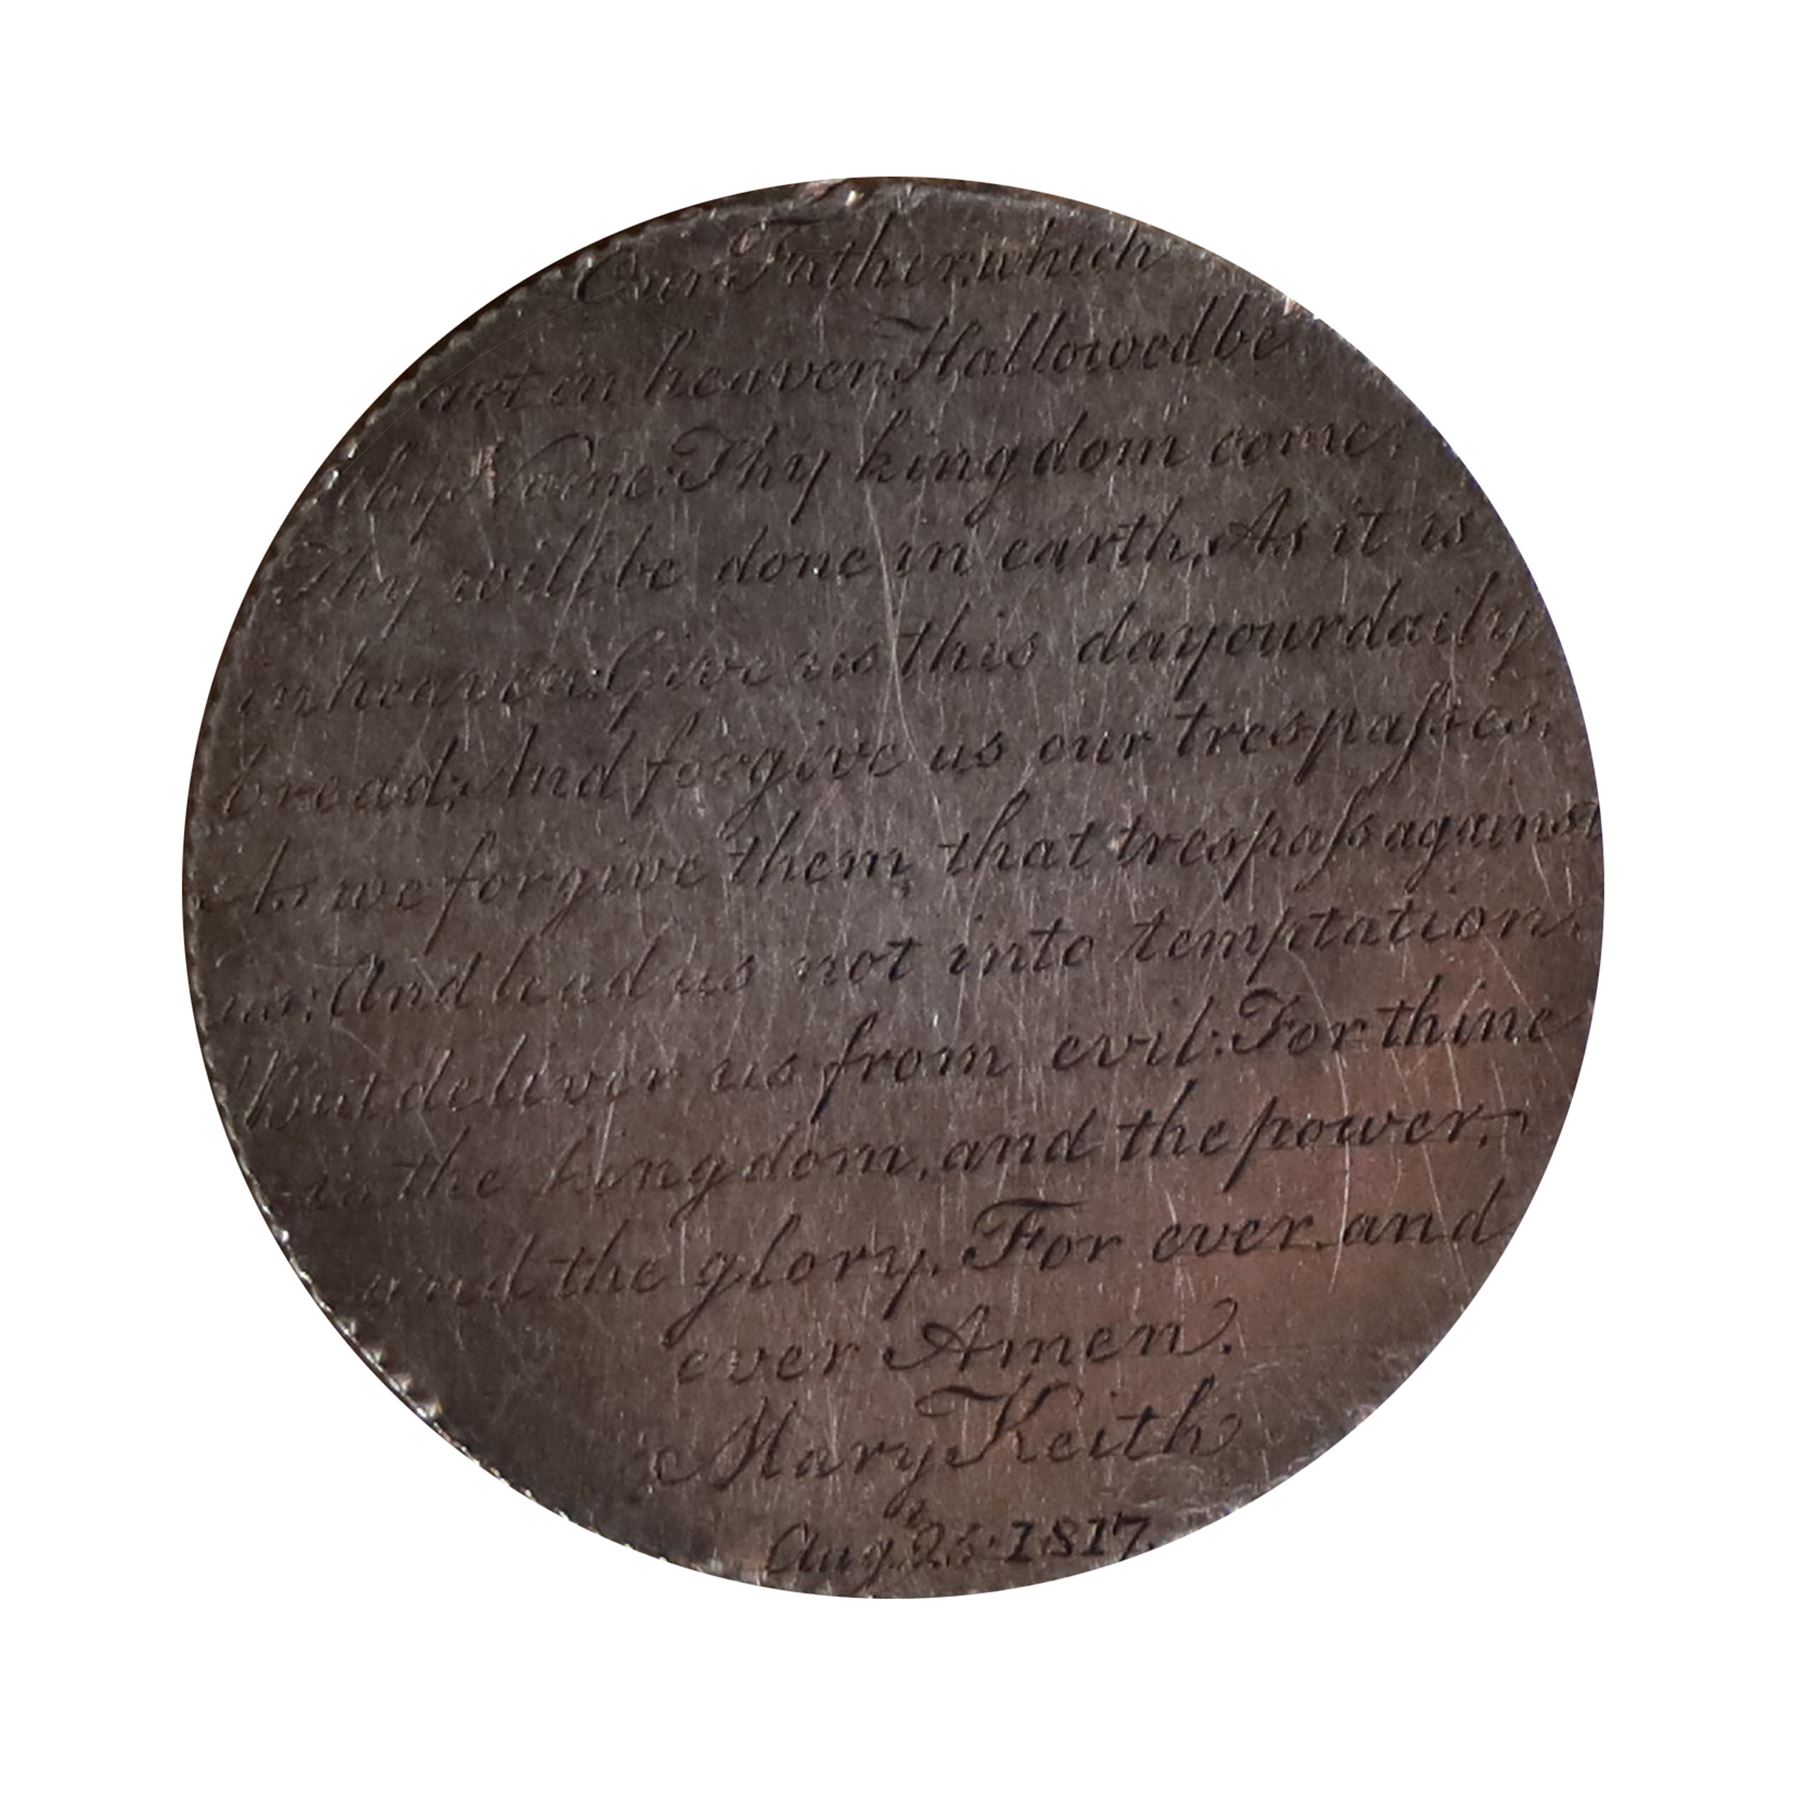 Our Father, which
art in heaven, Hallowed be
thy Name: Thy kingdom come:
Thy will be done in earth, As it is
in heaven: Give us this day our daily
bread; And forgive us our trespaſses,
As we forgive them that trespaſs against
us: And lead us not into temptation:
But deliver us from evil: For thine
is the kingdom, and the power,
and the glory, For ever and
ever Amen.
Mary Keith
Aug.t 25: 1817.